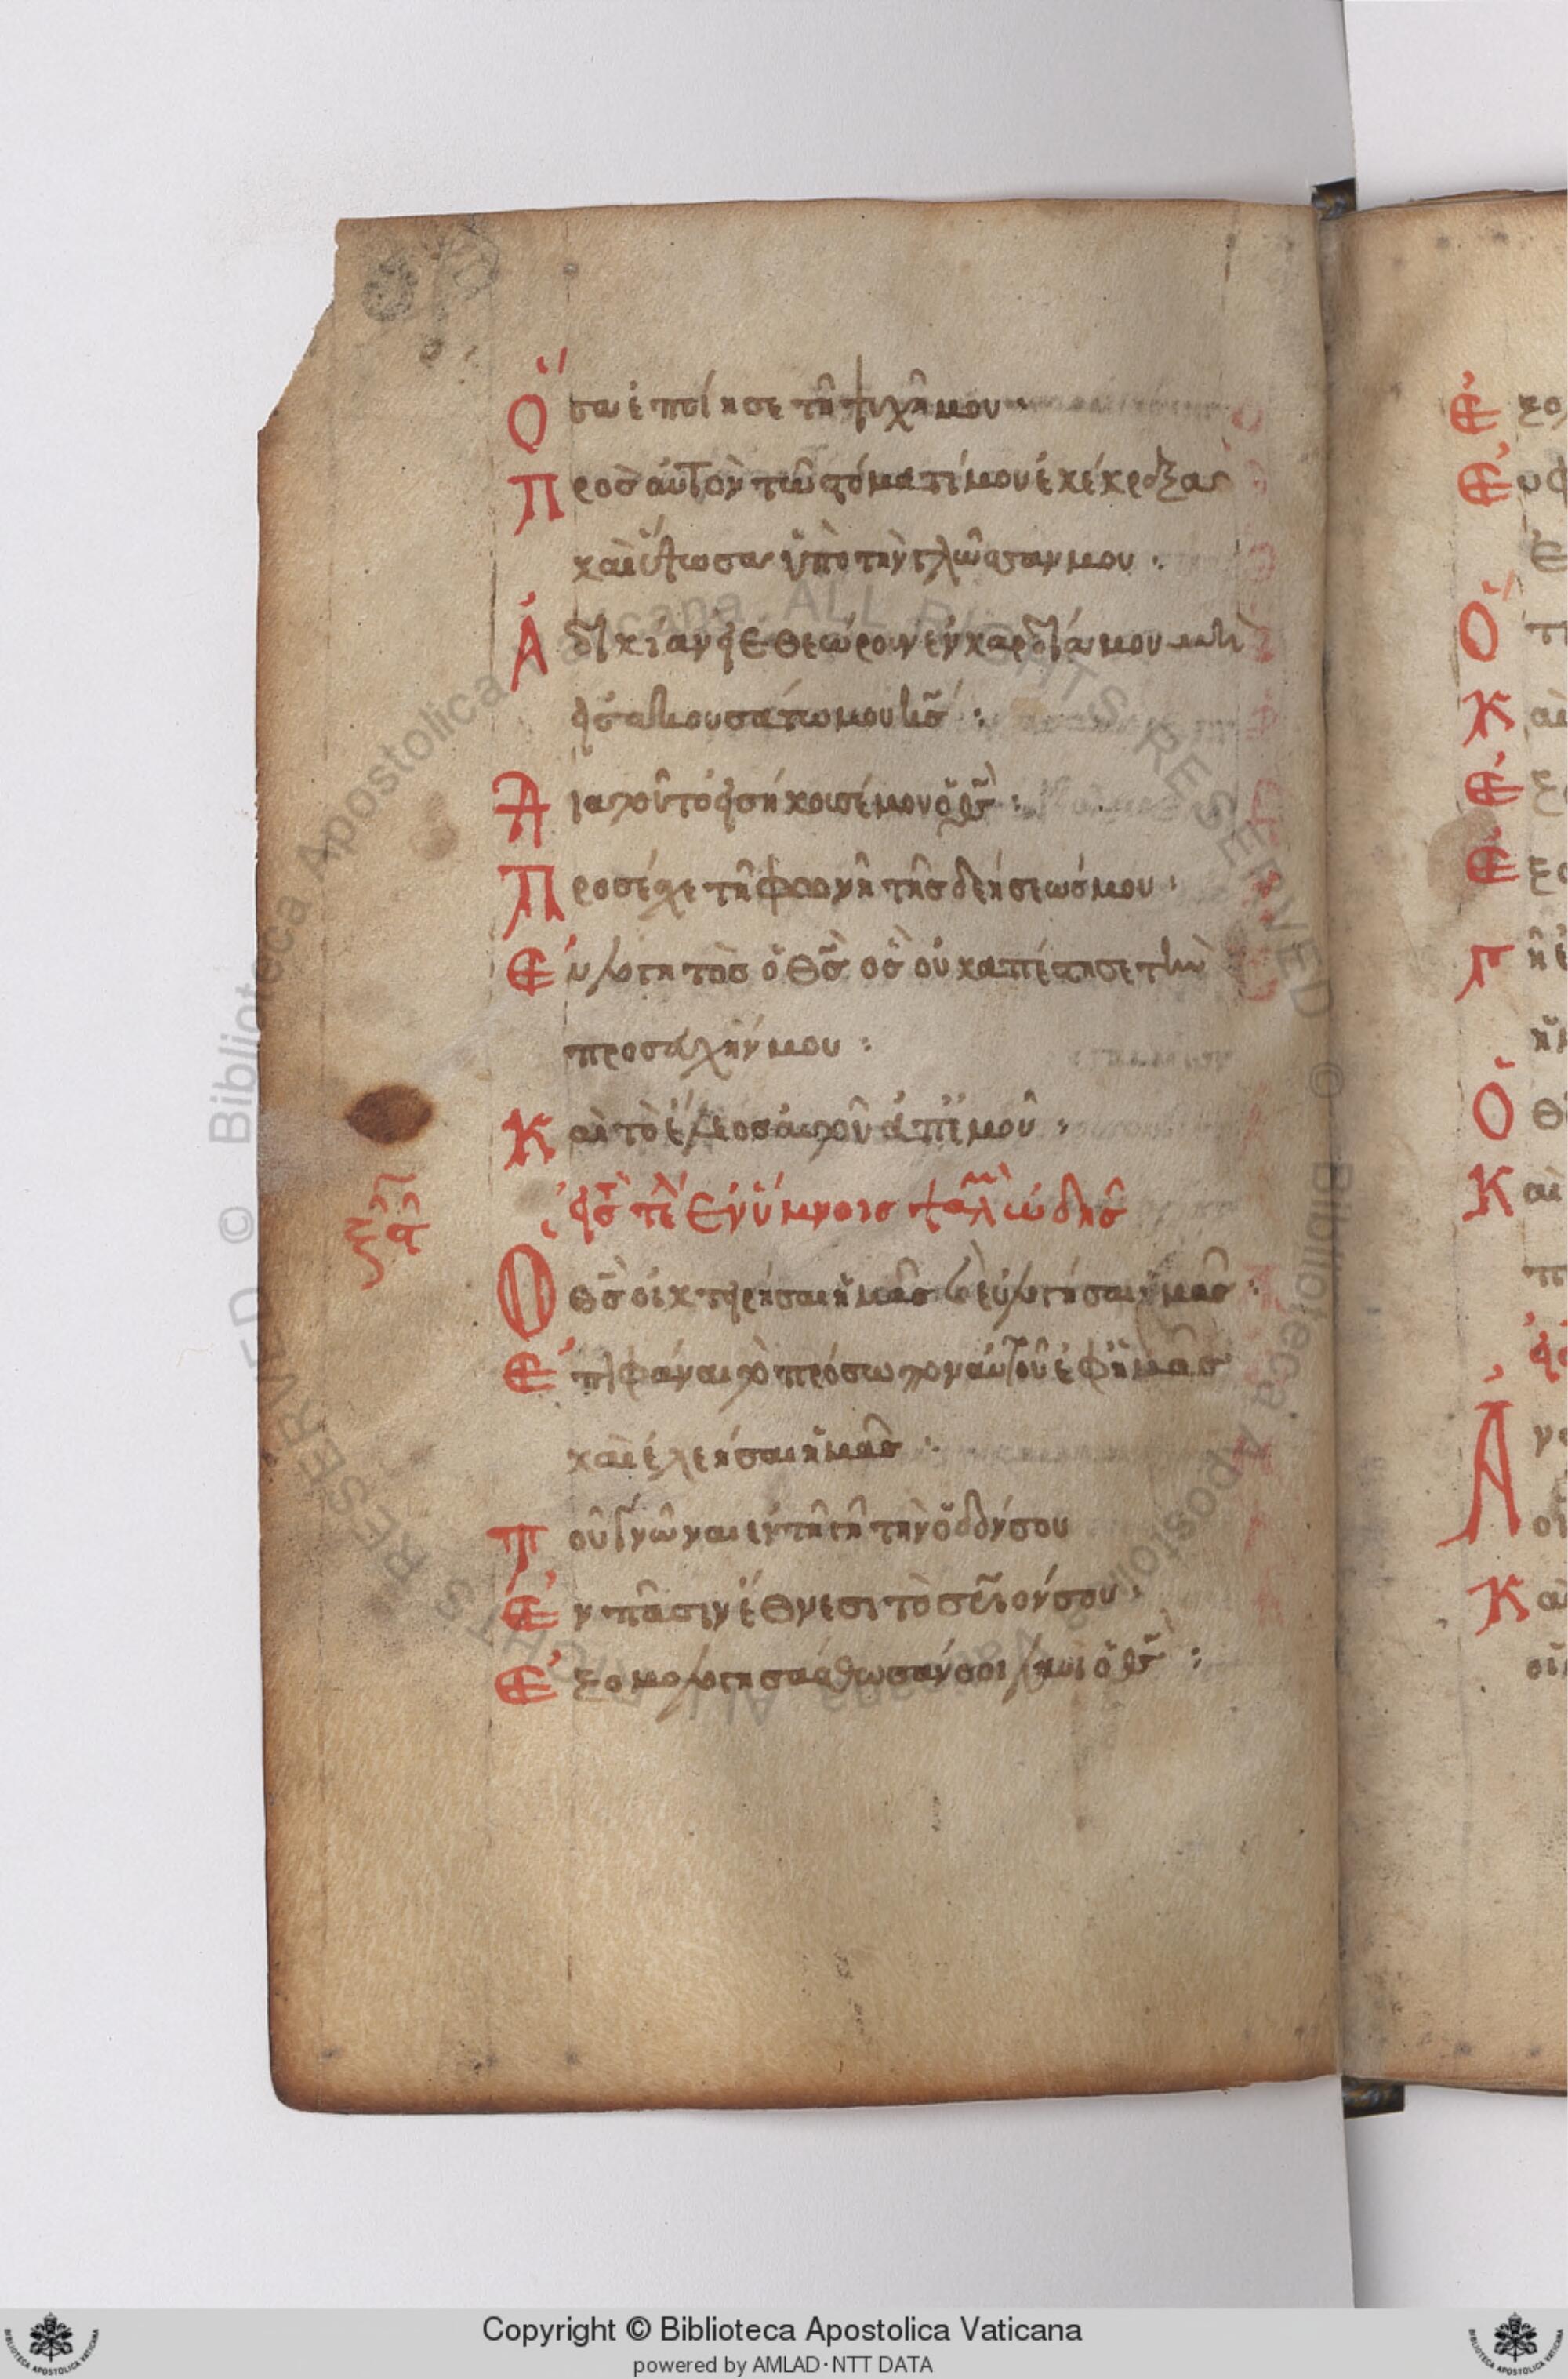 Ὅσα ἐποίησε τῆ ψυχῆ μου·
Πρὸς αὐτὸν τῶ στόματί μου ἐκέκραξα
καὶ ὕψωσα ὑπὸ τὴν γλῶσσαν μου :
Ἀδικίαν εἰ ἐθεώρουν ἐν καρδία μου μὴ
εἰσακουσάτω μου κς :
Διατοῦτο εἰσήκουσέ μου ὁ θς :
Προσέσχε τῆ φωνῆ τῆς δεήσεώς μου :
Εὐλογητὸς ὁ θς ὃς οὐκ ἀπέστησε τὴν
προσευχήν μου :
Καὶ τὸ ἔλεος αὐτοῦ ἀπ' ἐμοῦ :
εἰς τὸ τέλ Ἐν ὕμνοις ψαλμ ὠδῆς
Ὁ θς οἰκτειρήσαι ἡμᾶς καὶ εὐλογήσαι ἡμᾶς :
Ἐπιφάναι τὸ πρόσωπον αὐτοῦ ἐφ' ἡμᾶς
καὶ ἐλεήσαι ἡμᾶς :
Τοῦ γνῶναι ἐν τῆ γῆ τὴν ὁδόν σου
Ἐν πᾶσιν ἔθνεσι τὸ σριόν σου :
Ἐξομολογησάσθωσάν σοι λαοὶ ὁ θς :
Copyright © Biblioteca Apostolica Vaticana
powered by AMLAD·NTT DATA